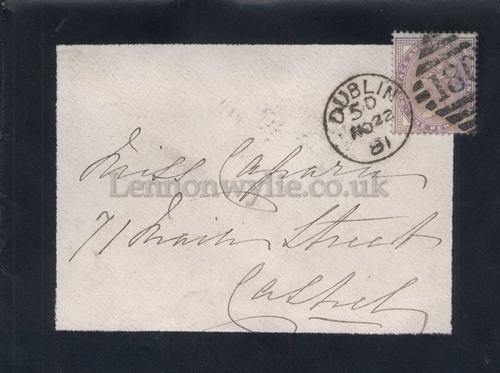 DUBLIN
5·D
NO 22
81
186
Miss Capara
Lennonwylie.co.uk
71 Main Street
Cashel